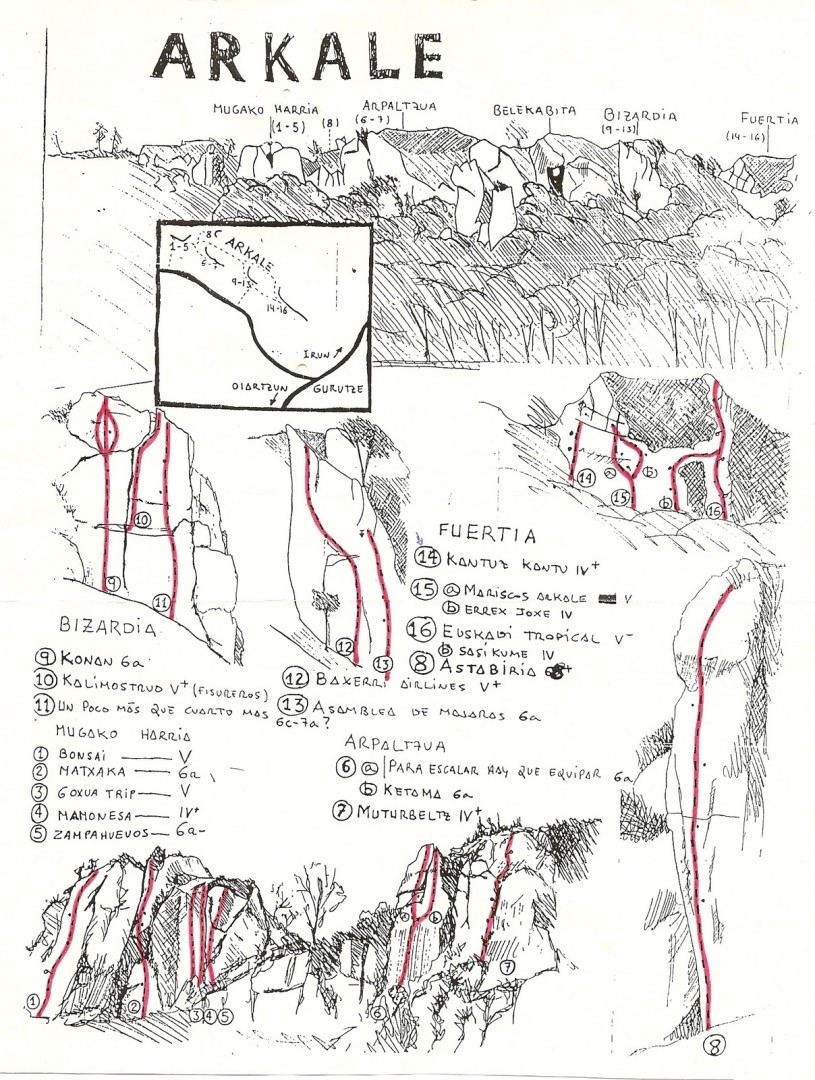 ARKALE
MUGAKO HARRIA
(1-5)
(8)
ARPALTZUA
(6-7)
BELEKABITA
BIZARDIA
(9-13)
FUERTIA
(14-16)
1-5
8
ARKALE
6-7
9-13
14-16
IRUN
OIARTZUN
GURUTZE
9
10
11
12
13
14
a
15
b
b
16
FUERTIA
14 KANTUZ KANTU IV+
15 a MARISCOS ARKALE V
b ERREX JOXE IV
16 EUSKADI TROPICAL V-
b SASIKUME IV
8 ASTABIRIA
BIZARDIA
9 KONAN 6a
10 KALIMOSTRUO V+ (FISUREROS)
11 UN POCO MÁS QUE CUARTO MAS
6c-7a?
12 BAXERRI AIRLINES V+
13 ASAMBLEA DE MAJARAS 6a
MUGAKO HARRIA
1 BONSAI V
2 MATXAKA 6a
3 GOXUA TRIP V
4 MAMONESA IV+
5 ZAMPAHUEVOS 6a-
ARPALTZUA
6 a PARA ESCALAR HAY QUE EQUIPAR 6a
b KETAMA 6a
7 MUTURBELTZ IV+
1
2
3 4 5
6
a
b
7
8